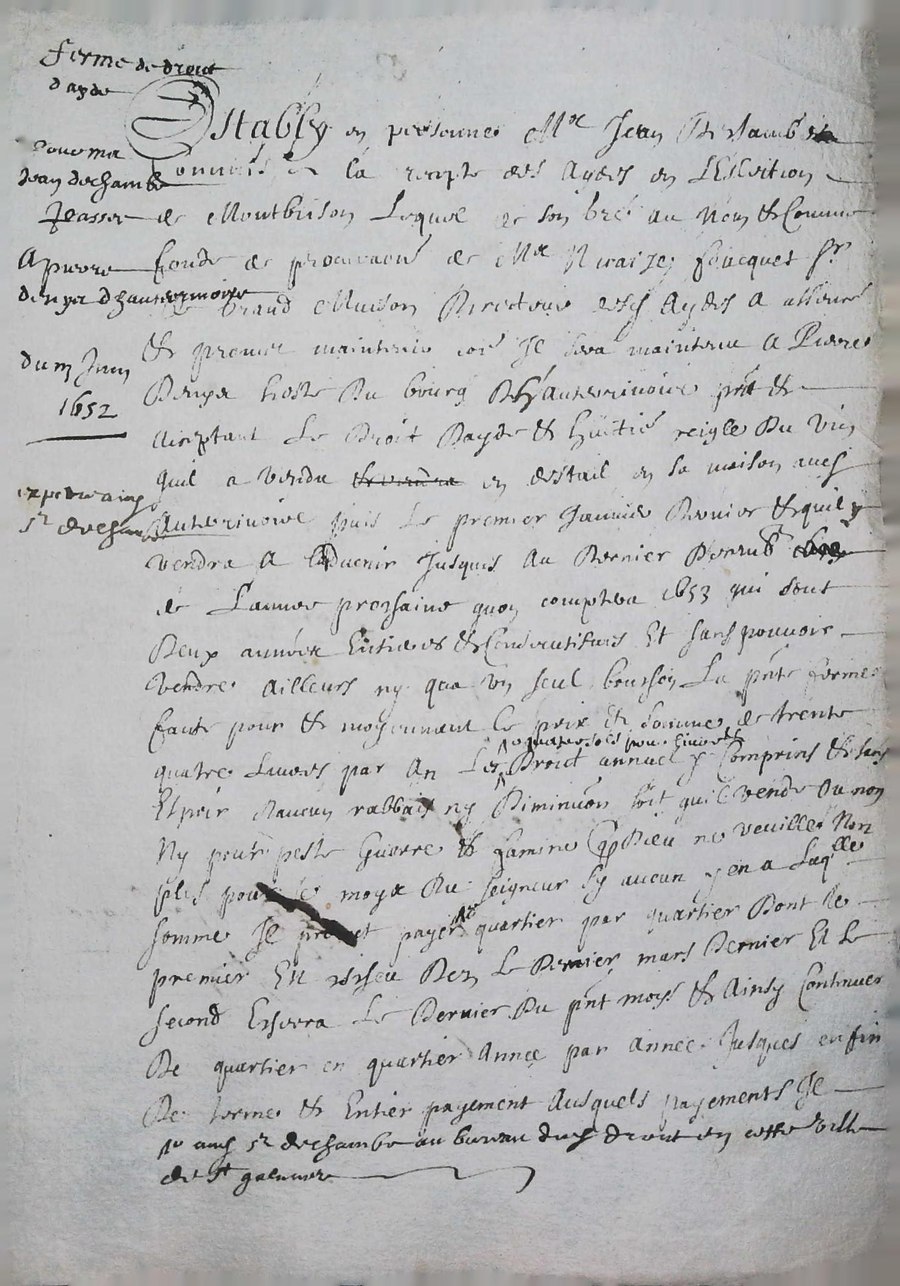 ferme de droit
d'ayde
pour me
Jean dechambe
Jeasser
A pierre
denya d'hauterivoire
du m Juin
1652
expedié aud
sr decham
Establÿ en personne Me Jean Dechambe
commis a la recepte des Aydes en L'Eslection
de Montbrison Lequel de son gré au Nom & Comme
fondé de procuraoñ de Me Fouequet sr
grand Maison Directeur desd Aydes a asseuré
& premier maintenir coe Il sera maintenu A Pierre
Denya hoste Du bourg D'hauterivoire pnt &
acceptant Le Droit Dayde & huitie reigle Du Vin
quil a Vendu & vendra en destail en sa maison aud
hauterivoire puis Le premier Janvier Dernier & quil y
Vendra A L'aduenir Jusques Au Dernier Decemb
de L'annee prochaine quon comptera 1653 qui sont
Deux années Entieres & Consecutifves Et sans pouvoir
Vendre Ailleurs ny qua un seul bouchon La pnte ferme
faite pour & moyennant le prix Et somme de trente
quatre Livres par An Les quatre sols pour livre &
Droict annuel y Comprins & sans
Espoir D'aucun rabbais ny Diminuon soit qu'il Vende Ou non
Ny pour peste Guerre & famine (q Dieu ne veuille Non
plus pour le moys Du seigneur sy aucun y en a Laqlle
somme Il promet payer quartier par quartier Dont le
premier Est escheu Dez Le Dernier mars Dernier Et Le
second Escherra Le Dernier Du pnt moys & Ainsy Continuer
De quartier en quartier Année par année Jusques en fin
De terme & Entier payement Ausquels payements Il
aud sr dechambe au bureau dud droit en ceste Ville
de St galmier